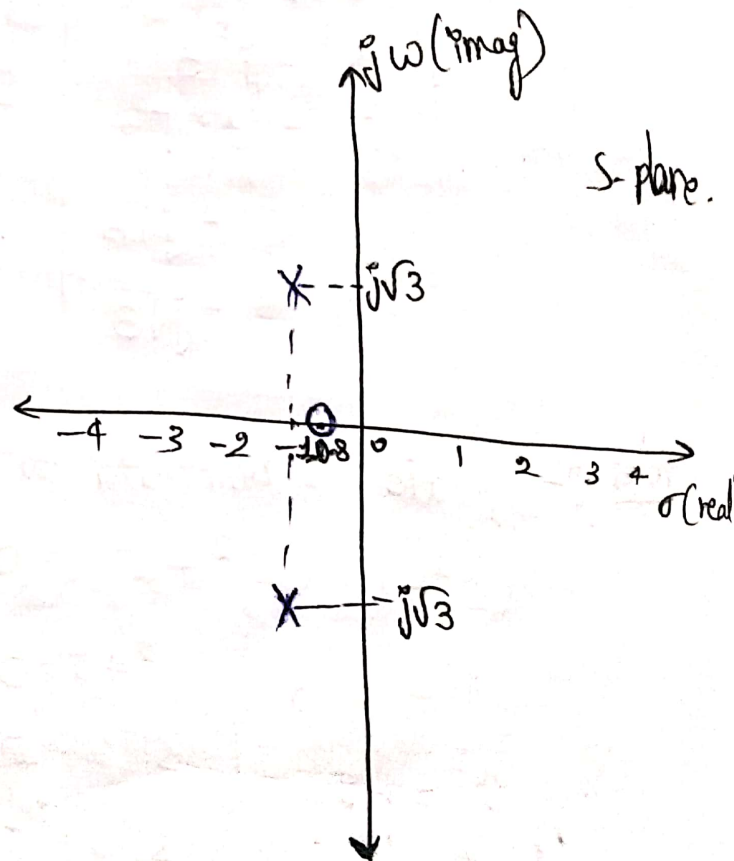 jω(imag)
S-plane.
j√3
-4 -3 -2 -1 0.8 0 1 2 3 4
σ(real
-j√3